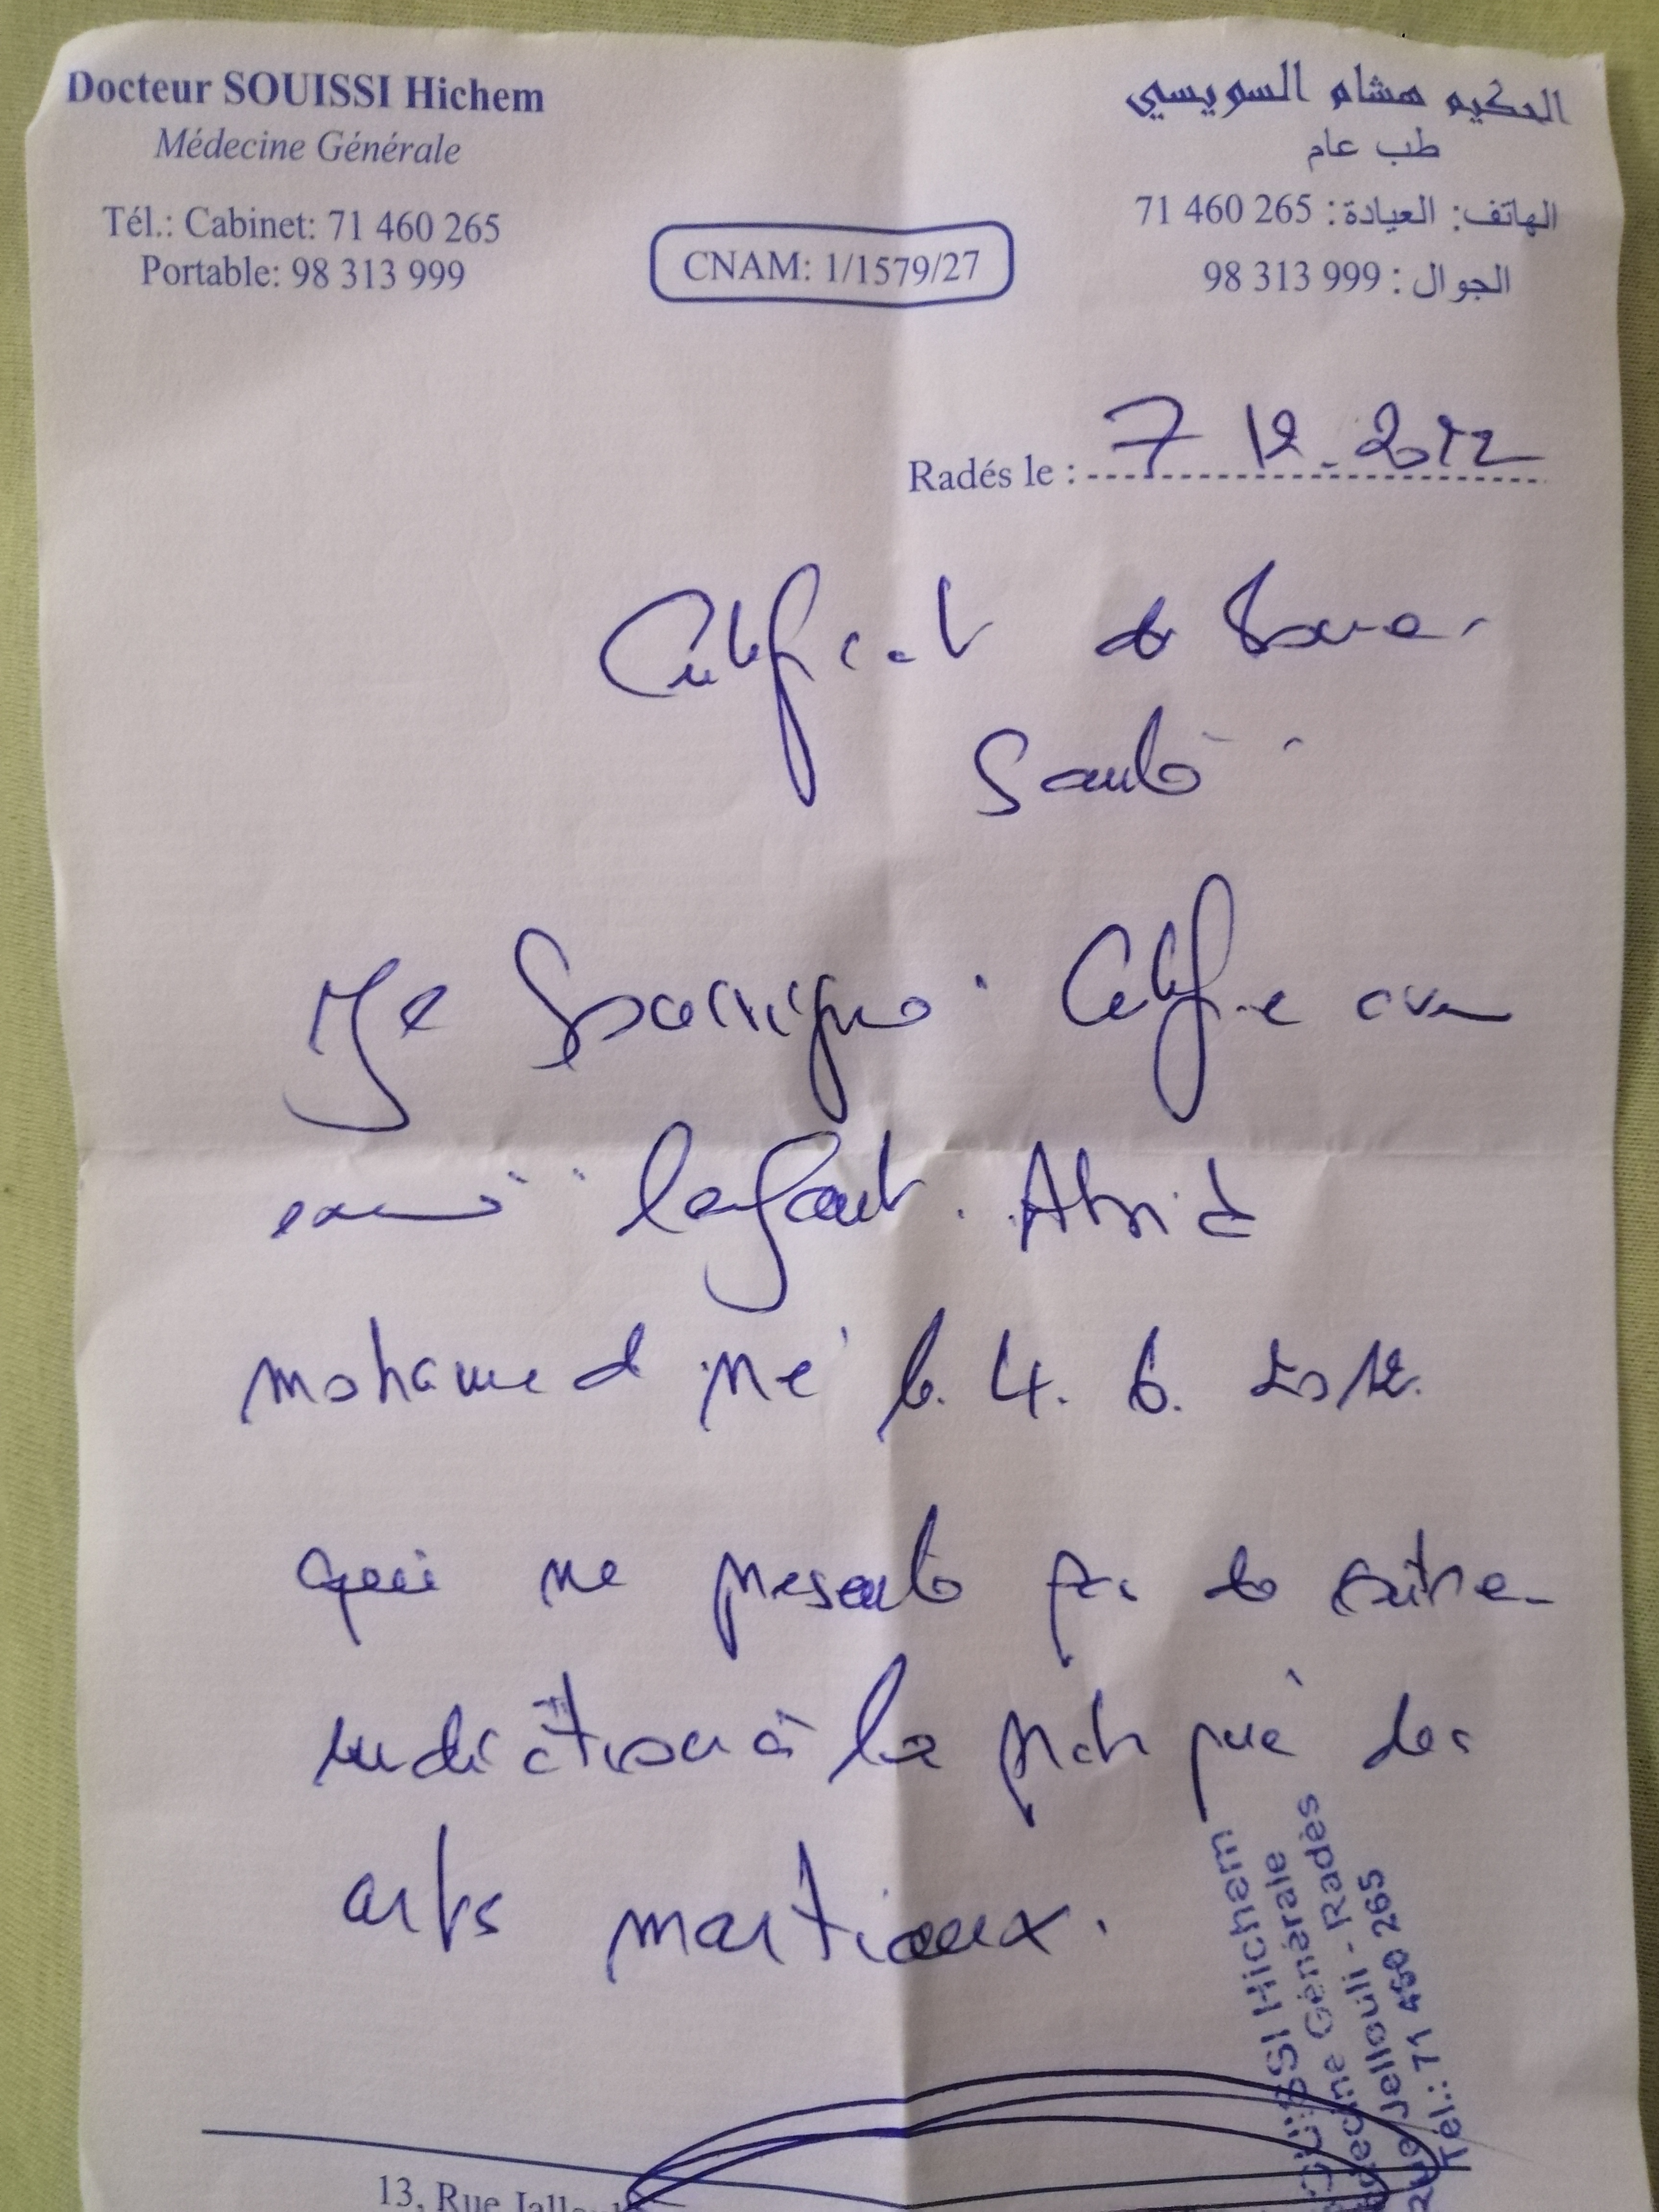 Docteur SOUISSI Hichem
Médecine Générale
Tél.: Cabinet: 71 460 265
Portable: 98 313 999
CNAM: 1/1579/27
الحكيم هشام السويسي
طب عام
الهاتف: العيادة: 71 460 265
الجوال: 98 313 999
Radés le : 7 12 - 2012
Certificat de bonne
Santé
Je Soussigné Certifie avoir
examiné l'enfant
mohamed né le 4. 6. 2012.
qui ne presente pas de contre
indication à la pratique des
arts martiaux.
SOUISSI Hichem
Médecine Générale
Rue Jellouli - Radès
Tél.: 71 460 265
13, Rue